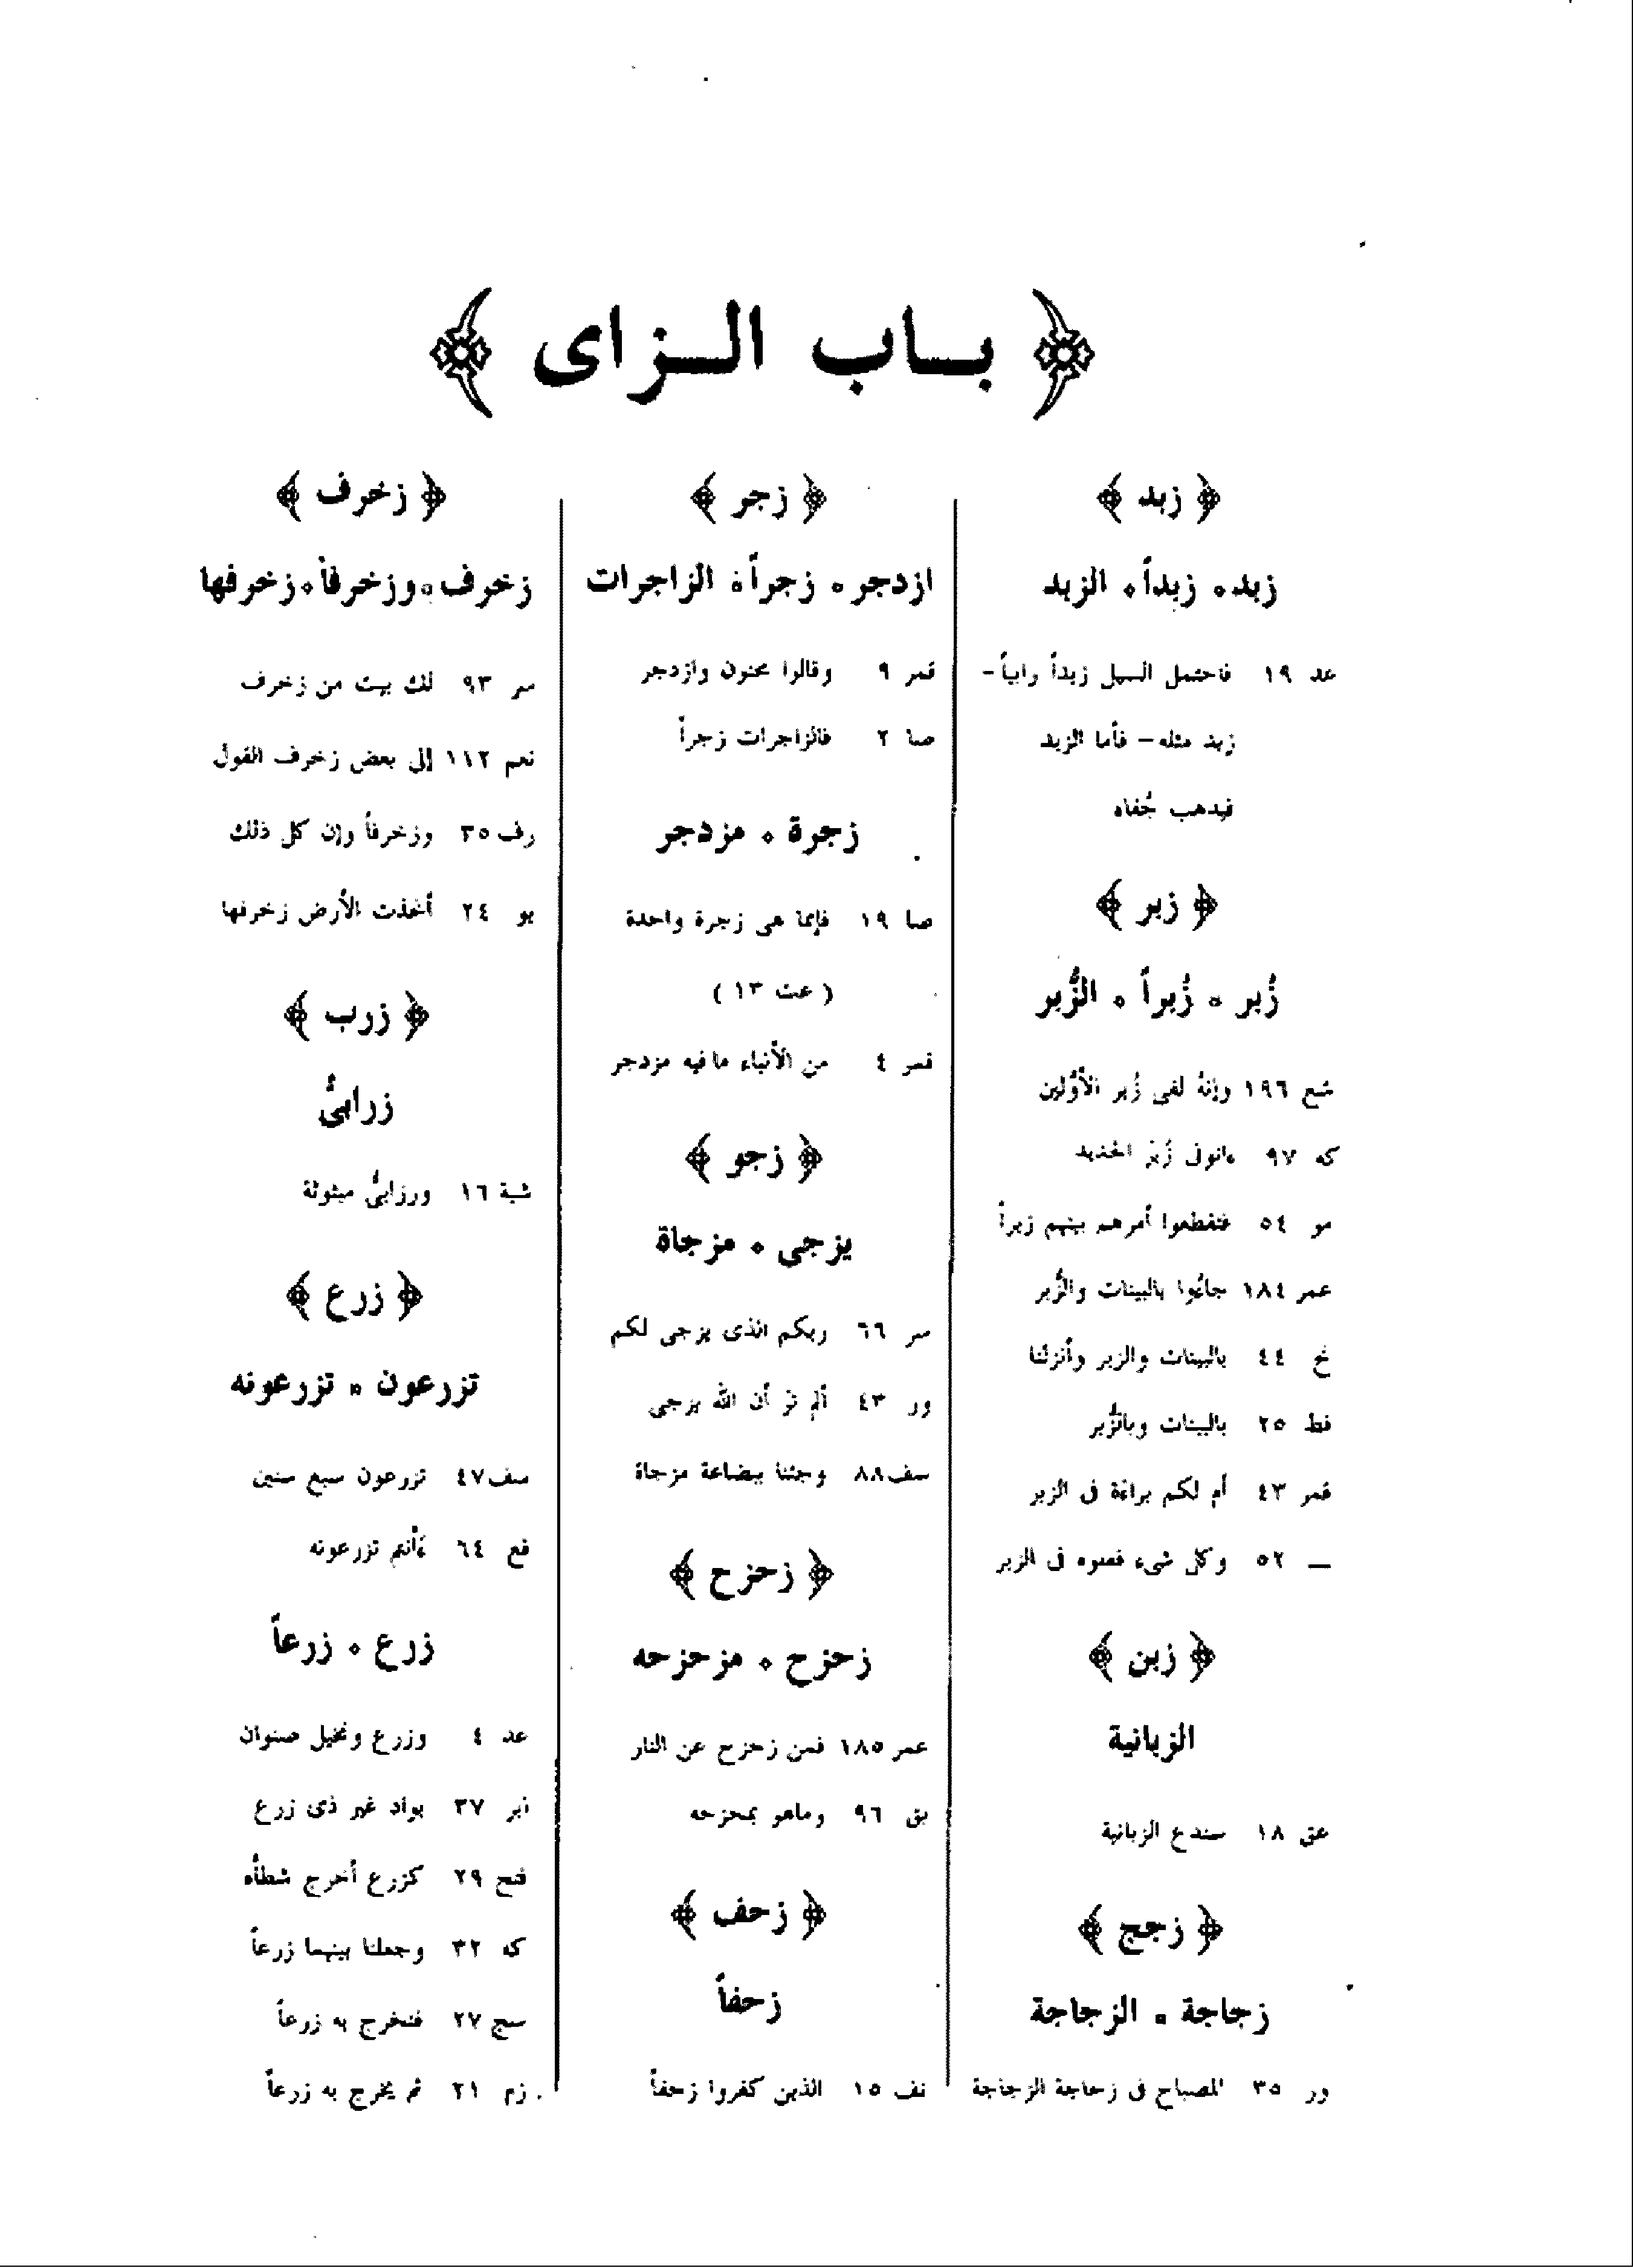 ﴿ بـاب الـزاى ﴾
﴿ زبد ﴾
زبد ۰ زبداً ۰ الزبد
عد ١٩ فاحتمل السيل زبداً رابياً –
زبد مثله – فأما الزبد
فيذهب جُفاء
﴿ زبر ﴾
زُبر ۰ زُبراً ۰ الزُّبر
شع ١٩٦ وإنهُ لفى زُبر الأوَّلين
كه ٩٧ ءاتونى زُبَر الحديد
مو ٥٤ فتقطعوا أمرهم بينهم زبراً
عمر ١٨٤ جاءُوا بالبينات والزُّبر
نح ٤٤ بالبينات والزبر وأنزلنا
فط ٢٥ بالبينات وبالزُّبر
قمر ٤٣ أم لكم براءة فى الزبر
— ٥٢ وكل شىء فعلوه فى الزبر
﴿ زبن ﴾
الزبانية
عق ١٨ سندع الزبانية
﴿ زجج ﴾
زجاجة ۰ الزجاجة
ور ٣٥ المصباح فى زجاجة الزجاجة
﴿ زجر ﴾
ازدجر ۰ زجراً ۰ الزاجرات
قمر ٩ وقالوا مجنون وازدجر
صا ٢ فالزاجرات زجراً
زجرة ۰ مزدجر
صا ١٩ فإنما هى زجرة واحدة
( عت ١٣ )
قمر ٤ من الأنباء ما فيه مزدجر
﴿ زجو ﴾
يزجى ۰ مزجاة
سر ٦٦ ربكم الذى يزجى لكم
ور ٤٣ ألم تر أن الله يزجى
سف ٨٨ وجئنا ببضاعة مزجاة
﴿ زحزح ﴾
زحزح ۰ مزحزحه
عمر ١٨٥ فمن زحزح عن النار
بق ٩٦ وماهو بمحزحه
﴿ زحف ﴾
زحفاً
نف ١٥ الذين كفروا زحفاً
﴿ زخرف ﴾
زخرف ۰ وزخرفاً ۰ زخرفها
سر ٩٣ لك بيت من زخرف
نعم ١١٢ إلى بعض زخرف القول
رف ٣٥ وزخرفاً وإن كل ذلك
يو ٢٤ أخذت الأرض زخرفها
﴿ زرب ﴾
زرابىُّ
شية ١٦ ورزابىُّ مبثوثة
﴿ زرع ﴾
تزرعون ۰ تزرعونه
سف ٤٧ تزرعون سبع سنين
قع ٦٤ ءَأنتم تزرعونه
زرع ۰ زرعاً
عد ٤ وزرع ونخيل صنوان
ابر ٣٧ بواد غير ذى زرع
فتح ٢٩ كزرع أخرج شطأَه
كه ٣٢ وجعلنا بينهما زرعاً
سج ٢٧ فنخرج به زرعاً
زم ٢١ ثم يخرج به زرعاً